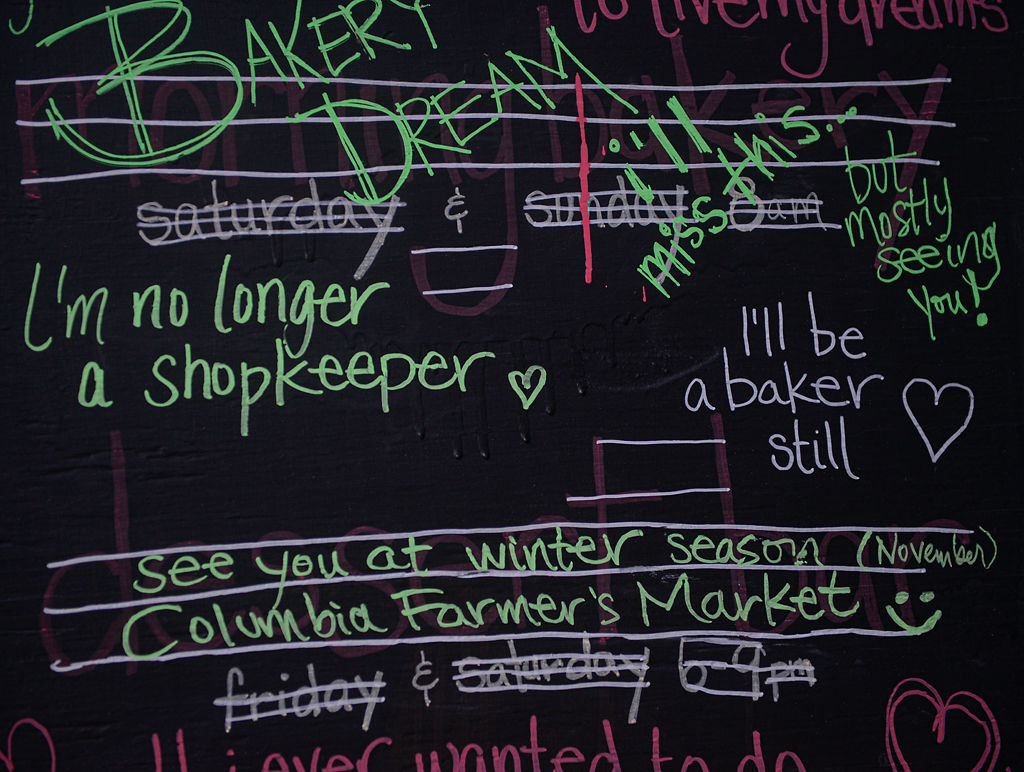 to live my dreams
BAKERY
DREAM
morning bakery
...i'll
miss this...
but
mostly
seeing
you!
saturday & sunday 8am
I'm no longer
a shopkeeper
I'll be
a baker
still
see you at winter season (November)
Columbia Farmer's Market
friday & saturday 6-9pm
i ever wanted to do